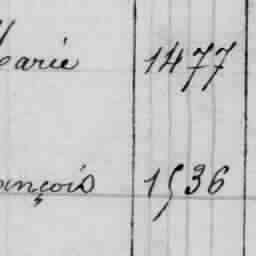 Marie 1477
ançois 1536